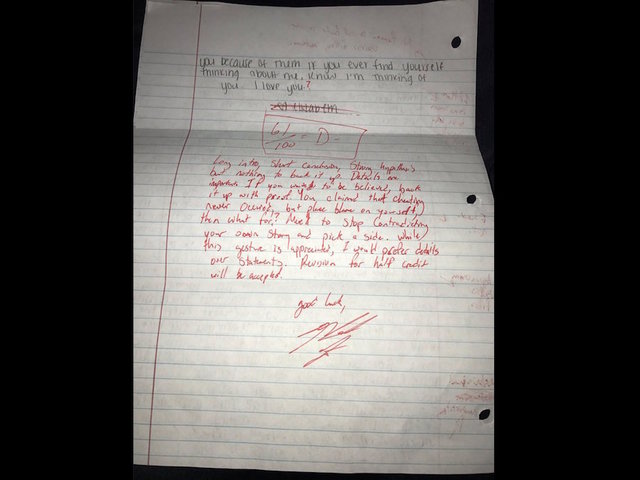 you because of them if you ever find yourself
thinking about me, know I'm thinking of
you. I love you.?
61/100 = D-
Long intro, short conclusion, Strong hypothesis
but nothing to back it up. Details are
important. If you want to be believed, back
it up with proof. You claimed that cheating
never occured, but place blame on yourself,
then what for? Need to stop contradicting
your own story and pick a side. While
this gesture is appreciated, I would prefer details
over statements. Revision for half credit
will be accepted.
Good luck,